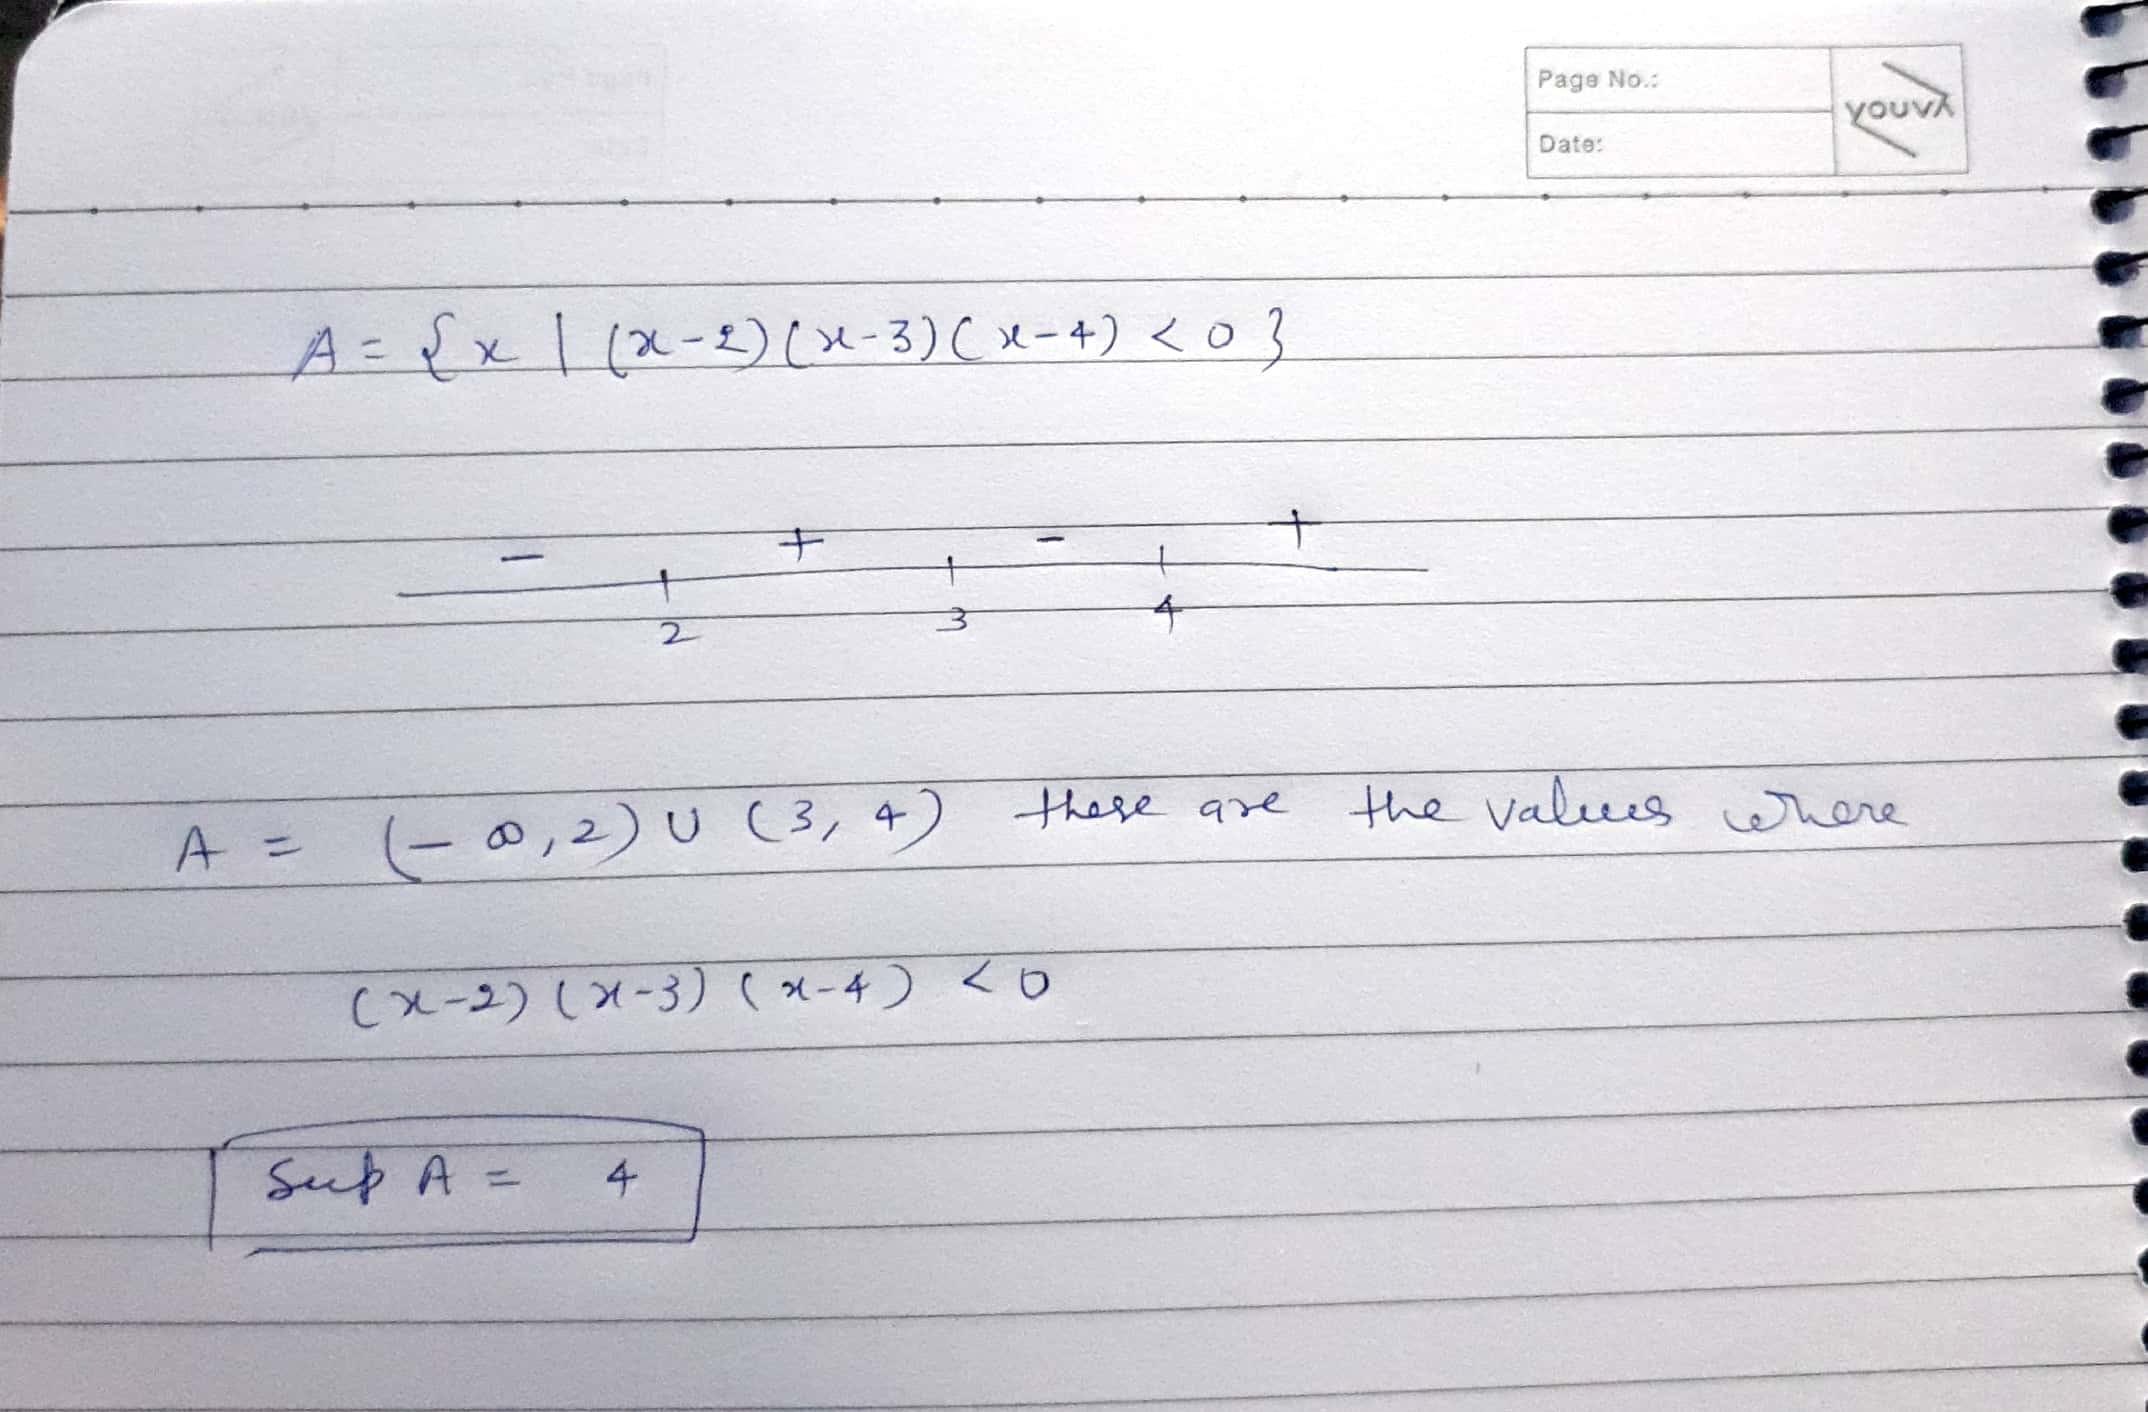 Page No.:
youva
Date:
A = {x | (x-2)(x-3)(x-4) < 0}
- + - +
2 3 4
A = (-∞,2) ∪ (3,4) these are the values where
(x-2)(x-3)(x-4) < 0
Sup A = 4